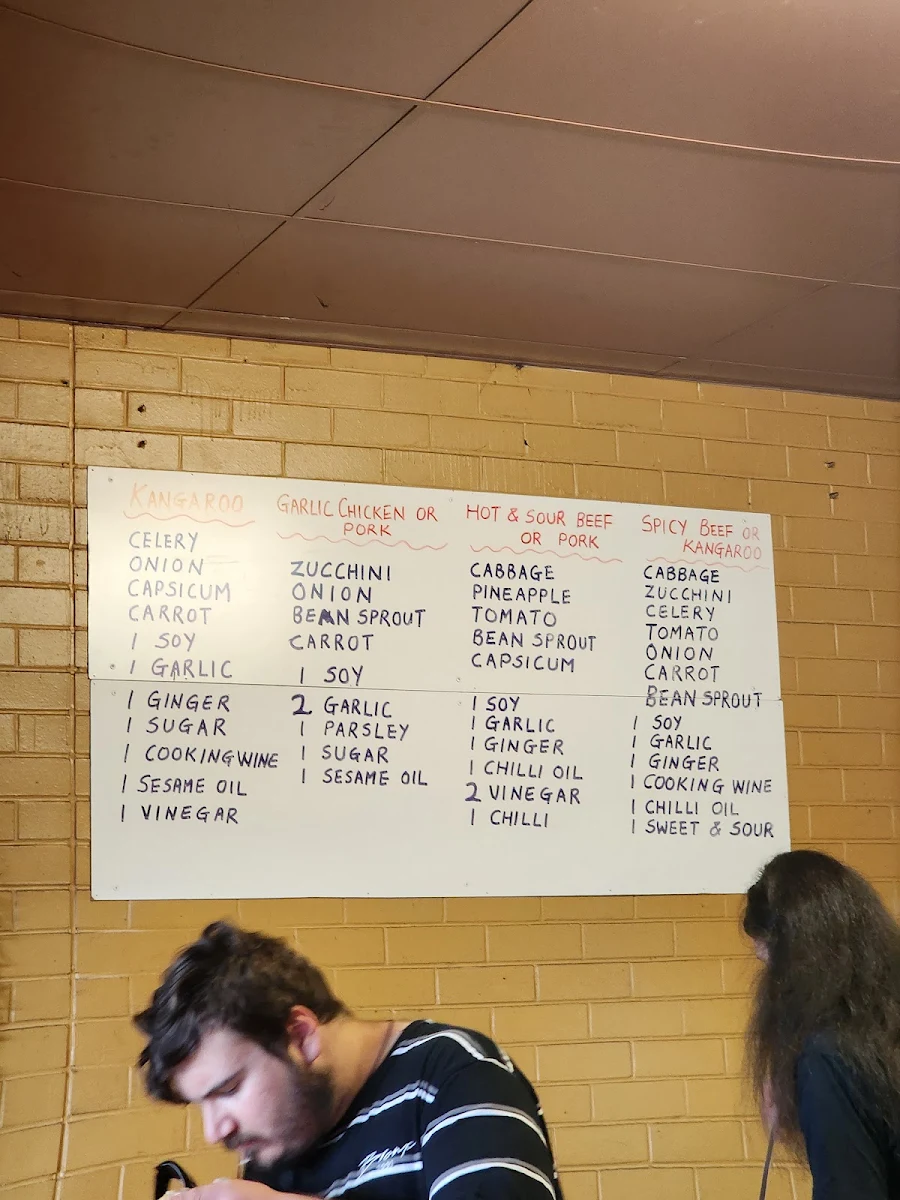 KANGAROO
CELERY
ONION
CAPSICUM
CARROT
1 SOY
1 GARLIC
1 GINGER
1 SUGAR
1 COOKING WINE
1 SESAME OIL
1 VINEGAR
GARLIC CHICKEN OR
PORK
ZUCCHINI
ONION
BEAN SPROUT
CARROT
1 SOY
2 GARLIC
1 PARSLEY
1 SUGAR
1 SESAME OIL
HOT & SOUR BEEF
OR PORK
CABBAGE
PINEAPPLE
TOMATO
BEAN SPROUT
CAPSICUM
1 SOY
1 GARLIC
1 GINGER
1 CHILLI OIL
2 VINEGAR
1 CHILLI
SPICY BEEF OR
KANGAROO
CABBAGE
ZUCCHINI
CELERY
TOMATO
ONION
CARROT
BEAN SPROUT
1 SOY
1 GARLIC
1 GINGER
1 COOKING WINE
1 CHILLI OIL
1 SWEET & SOUR